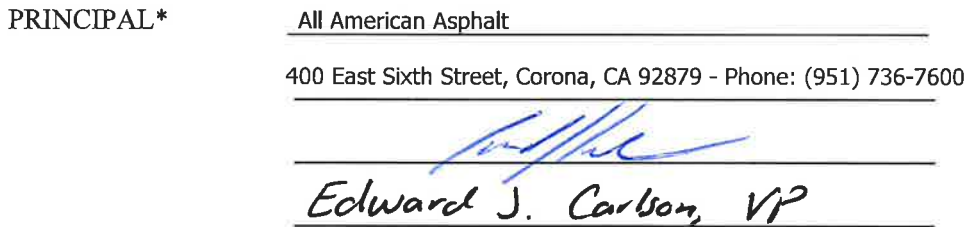 PRINCIPAL* All American Asphalt
400 East Sixth Street, Corona, CA 92879 - Phone: (951) 736-7600
Edward J. Carlson, VP